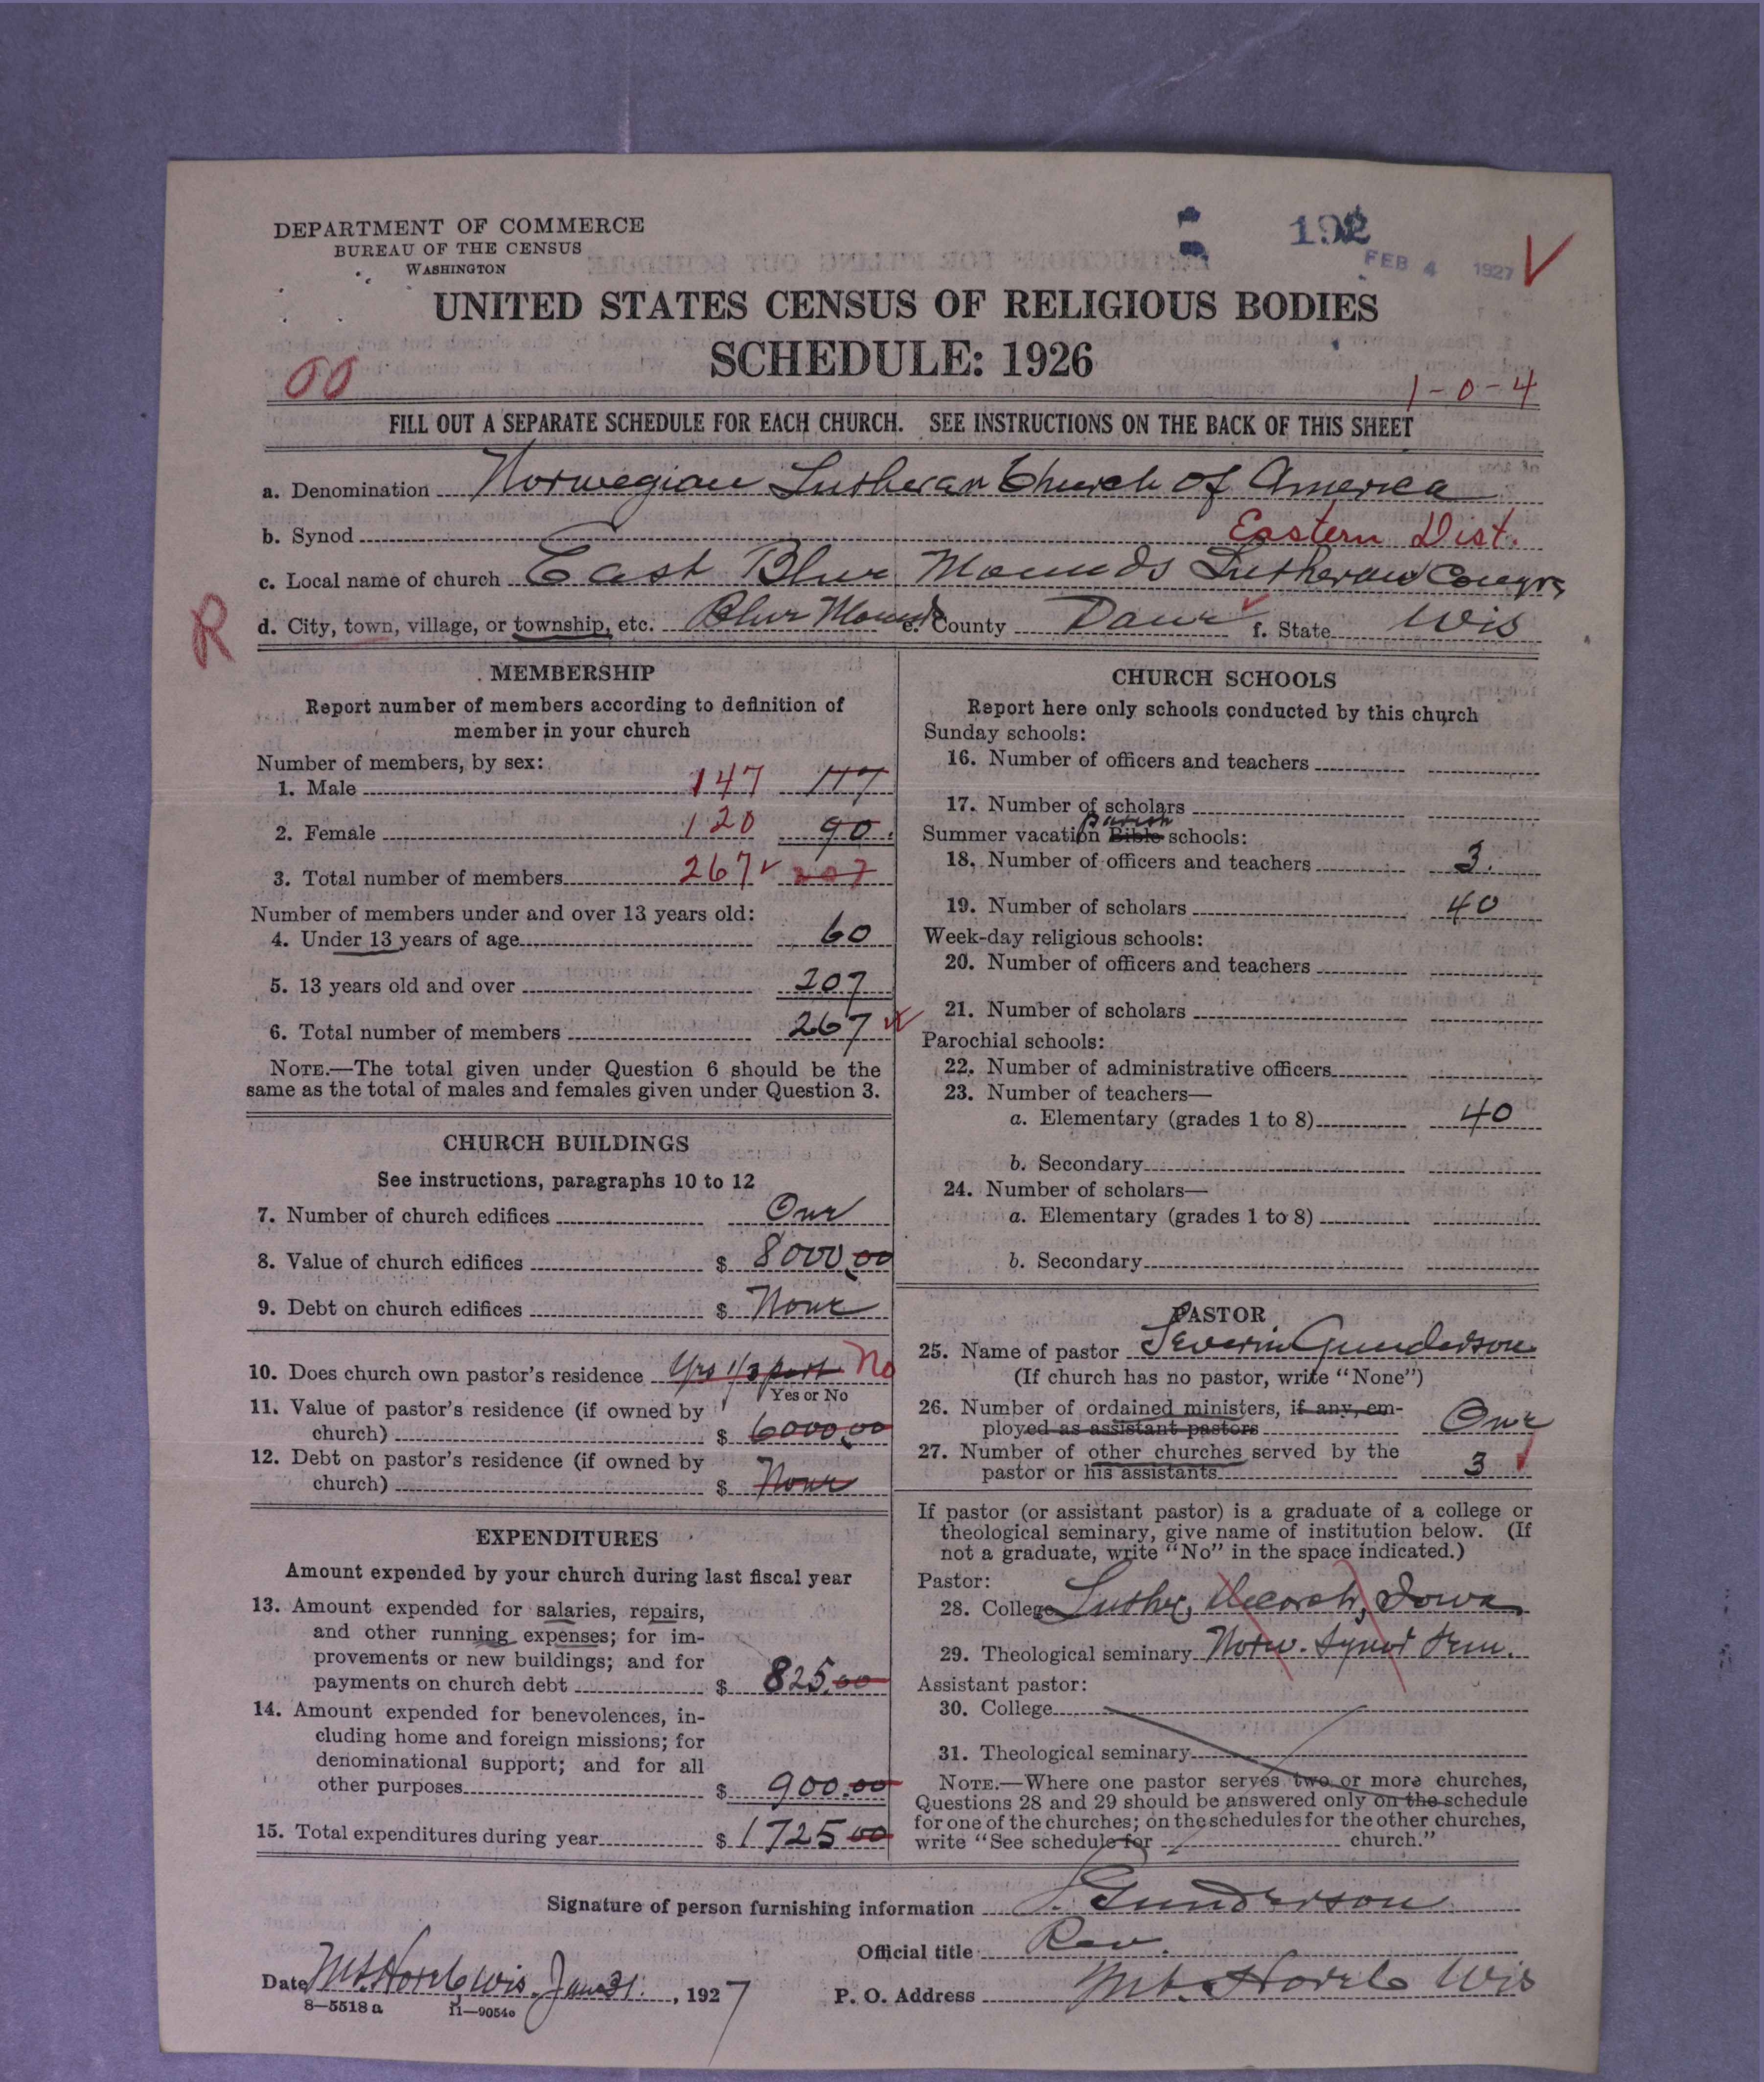 DEPARTMENT OF COMMERCE
BUREAU OF THE CENSUS
WASHINGTON
192
FEB 4 1927
UNITED STATES CENSUS OF RELIGIOUS BODIES
SCHEDULE: 1926
00
1-0-4
FILL OUT A SEPARATE SCHEDULE FOR EACH CHURCH. SEE INSTRUCTIONS ON THE BACK OF THIS SHEET
a. Denomination Norwegian Lutheran Church of America
b. Synod Eastern Dist.
c. Local name of church East Blue Mounds Lutheran Congrs
R
d. City, town, village, or township, etc. Blue Mounds e. County Dane f. State Wis
MEMBERSHIP
Report number of members according to definition of
member in your church
Number of members, by sex:
1. Male 147 117
2. Female 120 90
3. Total number of members 267 207
Number of members under and over 13 years old:
4. Under 13 years of age 60
5. 13 years old and over 207
6. Total number of members 267
NOTE.—The total given under Question 6 should be the
same as the total of males and females given under Question 3.
CHURCH BUILDINGS
See instructions, paragraphs 10 to 12
7. Number of church edifices One
8. Value of church edifices $ 8000.00
9. Debt on church edifices $ None
10. Does church own pastor's residence Yes 1/3 part No
Yes or No
11. Value of pastor's residence (if owned by
church) $ 6000.00
12. Debt on pastor's residence (if owned by
church) $ None
EXPENDITURES
Amount expended by your church during last fiscal year
13. Amount expended for salaries, repairs,
and other running expenses; for im-
provements or new buildings; and for
payments on church debt $ 825.00
14. Amount expended for benevolences, in-
cluding home and foreign missions; for
denominational support; and for all
other purposes $ 900.00
15. Total expenditures during year $ 1725 00
CHURCH SCHOOLS
Report here only schools conducted by this church
Sunday schools:
16. Number of officers and teachers
17. Number of scholars
parish
Summer vacation Bible schools:
18. Number of officers and teachers 3.
19. Number of scholars 40
Week-day religious schools:
20. Number of officers and teachers
21. Number of scholars
Parochial schools:
22. Number of administrative officers
23. Number of teachers—
a. Elementary (grades 1 to 8) 40
b. Secondary
24. Number of scholars—
a. Elementary (grades 1 to 8)
b. Secondary
PASTOR
25. Name of pastor Severin Gunderson
(If church has no pastor, write "None")
26. Number of ordained ministers, if any, em-
ployed as assistant pastors One
27. Number of other churches served by the
pastor or his assistants 3
If pastor (or assistant pastor) is a graduate of a college or
theological seminary, give name of institution below. (If
not a graduate, write "No" in the space indicated.)
Pastor:
28. College Luther, Decorah, Iowa
29. Theological seminary Norw. Synod Sem.
Assistant pastor:
30. College
31. Theological seminary
NOTE.—Where one pastor serves two or more churches,
Questions 28 and 29 should be answered only on the schedule
for one of the churches; on the schedules for the other churches,
write "See schedule for church."
Signature of person furnishing information S. Gunderson
Official title Rev.
Date Mt. Horeb Wis. Jan 31. , 1927
P. O. Address Mt. Horeb Wis
8—5518 a 11—9054o